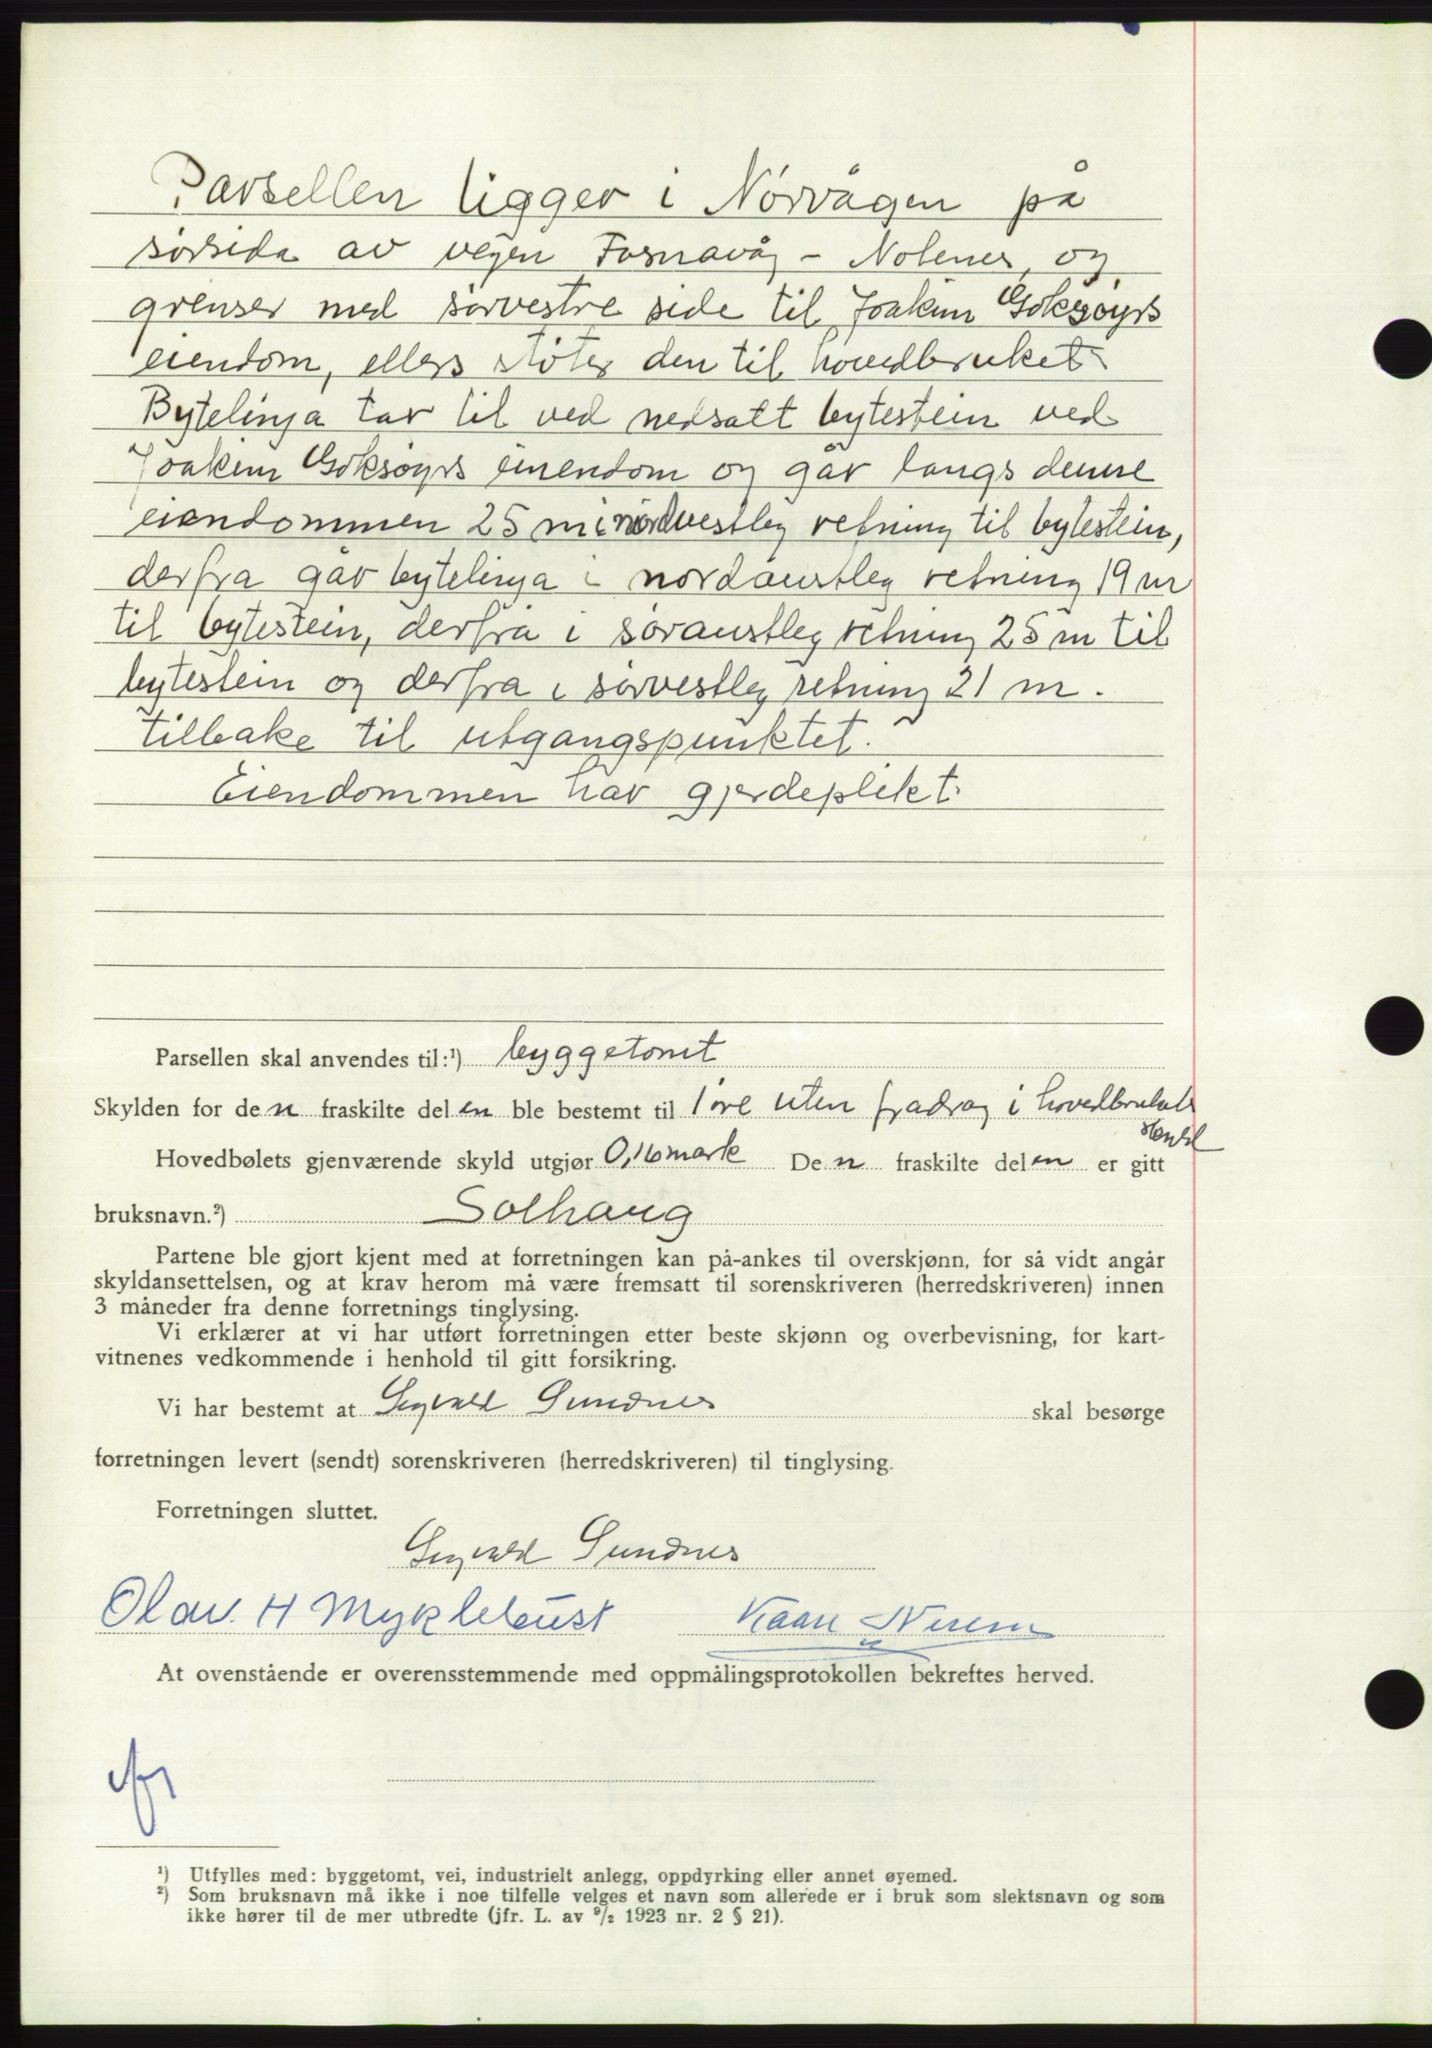 Parsellen ligger i Nørvågen på
sørsida av vegen Fosnavåg - Notenes, og
grenser med sørvestre side til Joakim Goksøyrs
eiendom, ellers støter den til hovedbruket.
Bytelinja tar til ved nedsatt bytestein ved
Joakim Goksøyrs einendom og går langs denne
eiendommen 25 m i nordvestleg retning til bytestein,
derfra går bytelinja i nordaustleg retning 19 m
til bytestein, derfra i søraustleg retning 25 m til
bytestein og derfra i sørvestleg retning 21 m.
tilbake til utgangspunktet.
Eiendommen har gjerdeplikt.
Parsellen skal anvendes til:¹) byggetomt
Skylden for den fraskilte delen ble bestemt til 1 øre uten fradrag i hovedbrukets
skyld
Hovedbølets gjenværende skyld utgjør 0,16 mark Den fraskilte delen er gitt
bruksnavn.²) Solhaug
Partene ble gjort kjent med at forretningen kan på-ankes til overskjønn, for så vidt angår
skyldansettelsen, og at krav herom må være fremsatt til sorenskriveren (herredskriveren) innen
3 måneder fra denne forretnings tinglysing.
Vi erklærer at vi har utført forretningen etter beste skjønn og overbevisning, for kart-
vitnenes vedkommende i henhold til gitt forsikring.
Vi har bestemt at Sigvald Sundnes skal besørge
forretningen levert (sendt) sorenskriveren (herredskriveren) til tinglysing.
Forretningen sluttet.
Sigvald Sundnes
Olav H Myklebust Kaare
At ovenstående er overensstemmende med oppmålingsprotokollen bekreftes herved.
¹) Utfylles med: byggetomt, vei, industrielt anlegg, oppdyrking eller annet øyemed.
²) Som bruksnavn må ikke i noe tilfelle velges et navn som allerede er i bruk som slektsnavn og som
ikke hører til de mer utbredte (jfr. L. av ⁹/₂ 1923 nr. 2 § 21).